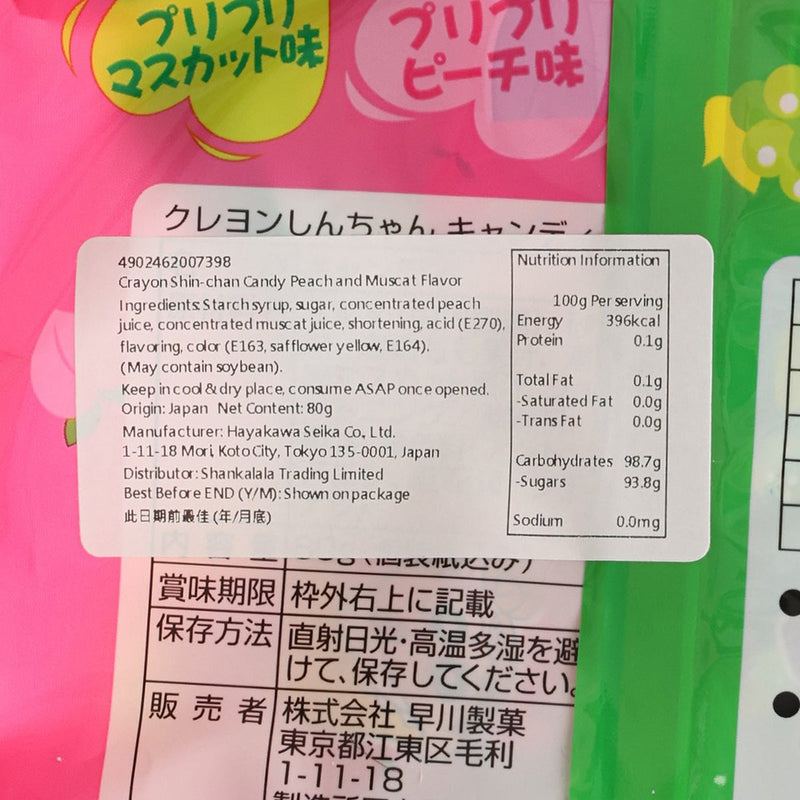 プリプリ
マスカット味
プリプリ
ピーチ味
クレヨンしんちゃん キャンディ
4902462007398
Crayon Shin-chan Candy Peach and Muscat Flavor
Ingredients: Starch syrup, sugar, concentrated peach
juice, concentrated muscat juice, shortening, acid (E270),
flavoring, color (E163, safflower yellow, E164).
(May contain soybean).
Keep in cool & dry place, consume ASAP once opened.
Origin: Japan Net Content: 80g
Manufacturer: Hayakawa Seika Co., Ltd.
1-11-18 Mori, Koto City, Tokyo 135-0001, Japan
Distributor: Shankalala Trading Limited
Best Before END (Y/M): Shown on package
此日期前最佳 (年/月底)
Nutrition Information
100g Per serving
Energy 396kcal
Protein 0.1g
Total Fat 0.1g
-Saturated Fat 0.0g
-Trans Fat 0.0g
Carbohydrates 98.7g
-Sugars 93.8g
Sodium 0.0mg
内容量 80g(個装紙込み)
賞味期限 枠外右上に記載
保存方法 直射日光・高温多湿を避
けて、保存してください。
販売者 株式会社 早川製菓
東京都江東区毛利
1-11-18